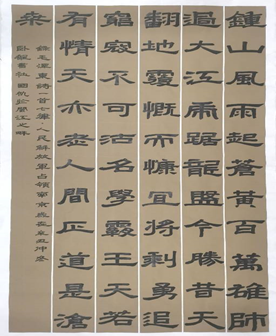 鍾山風雨起蒼黃百萬雄師
過大江虎踞龍盤今勝昔天
翻地覆慨而慷宜將剩勇追
窮寇不可沽名學霸王天若
有情天亦老人間正道是滄
桑
錄毛澤東詩一首七律人民解放軍占領南京歲在辛丑仲冬
於閩江之畔